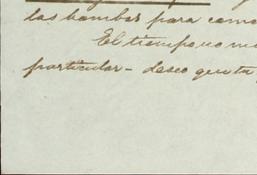 las bombas para com
El tiempo no m
particular - deseo que ta